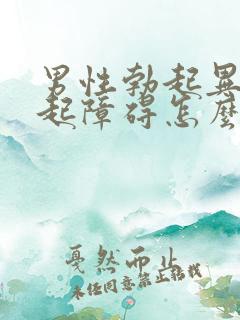 男性勃起異
起障碍怎麼
戛然而止
未经同意禁止转载